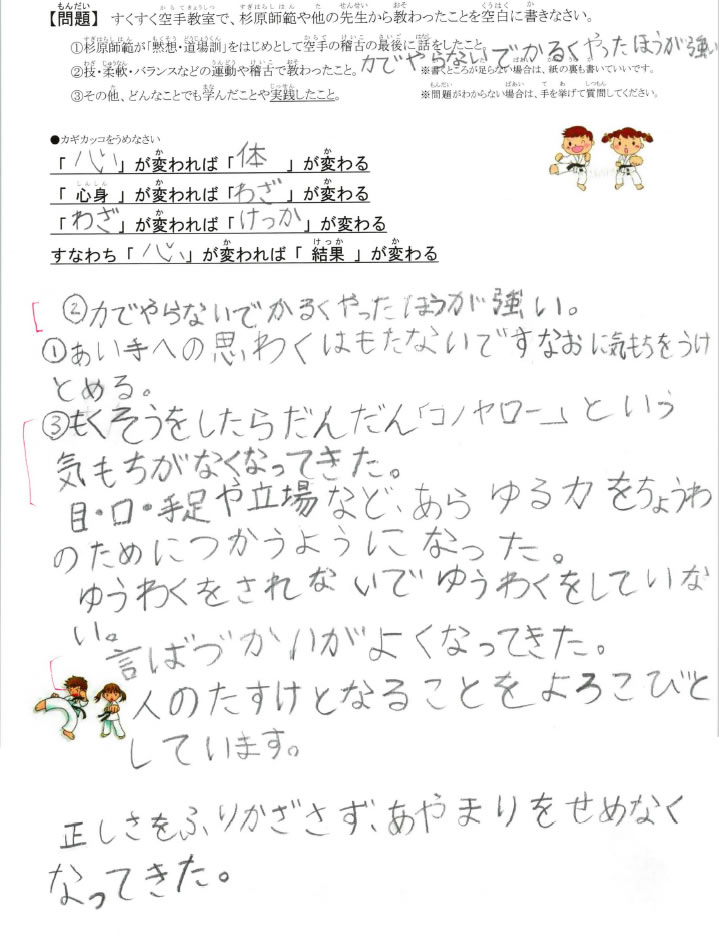 【問題】 すくすく空手教室で、杉原師範や他の先生から教わったことを空白に書きなさい。
①杉原師範が「黙想・道場訓」をはじめとして空手の稽古の最後に話をしたこと。
力でやらないでかるくやったほうが強い
②技・柔軟・バランスなどの運動や稽古で教わったこと。 ※書くところが足らない場合は、紙の裏も書いていいです。
③その他、どんなことでも学んだことや実践したこと。 ※問題がわからない場合は、手を挙げて質問してください。
●カギカッコをうめなさい
「 心 」が変われば「 体 」が変わる
「 心身 」が変われば「わざ 」が変わる
「 わざ 」が変われば「 けっか 」が変わる
すなわち「 心 」が変われば「 結果 」が変わる
②力でやらないでかるくやったほうが強い。
①あい手への思わくはもたないですなおに気もちをうけ
とめる。
③もくそうをしたらだんだん「コノヤロー」という
気もちがなくなってきた。
目・口・手足や立場など、あらゆる力をちょうわ
のためにつかうようになった。
ゆうわくをされないでゆうわくをしていな
い。
言ばづかいがよくなってきた。
人のたすけとなることをよろこびと
しています。
正しさをふりかざさず、あやまりをせめなく
なってきた。